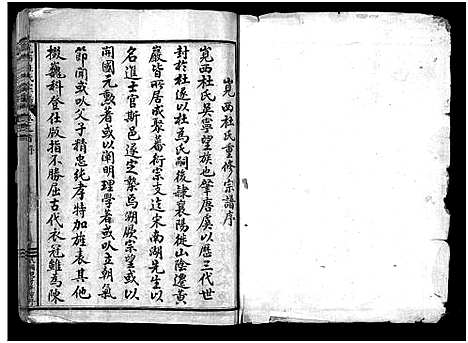 峴西杜氏重修宗譜序
峴西杜氏吳寧望族也肇唐虞以歷三代世
封於杜遂以杜為氏嗣後隸襄陽徙山陰遷黃
巖皆所居成聚蕃衍宗支迄宋南湖先生以
名進士官斯邑遂定 焉溯厥宗望或以
開國元勲著或以闡明理學者或以立朝氣
節聞或以父子精忠純孝特加旌表其他
掇巍科登仕版指不勝屈古代衣冠雖為陳